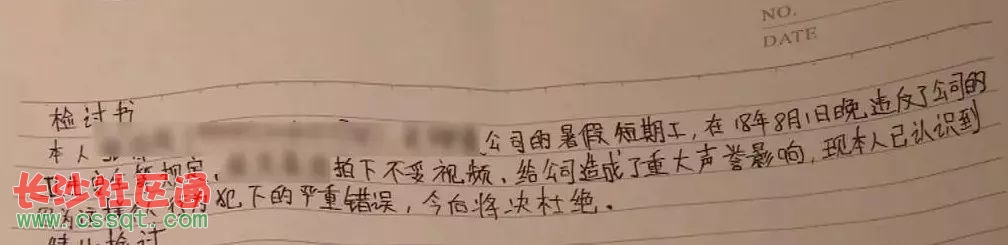 NO.
DATE
检讨书
本人 公司的暑假短期工,在18年8月1日晚违反了公司的
规定, 拍下不妥视频,给公司造成了重大声誉影响,现本人已认识到
犯下的严重错误,今后将决杜绝。
特此检讨
长沙社区通
www.cssqt.com